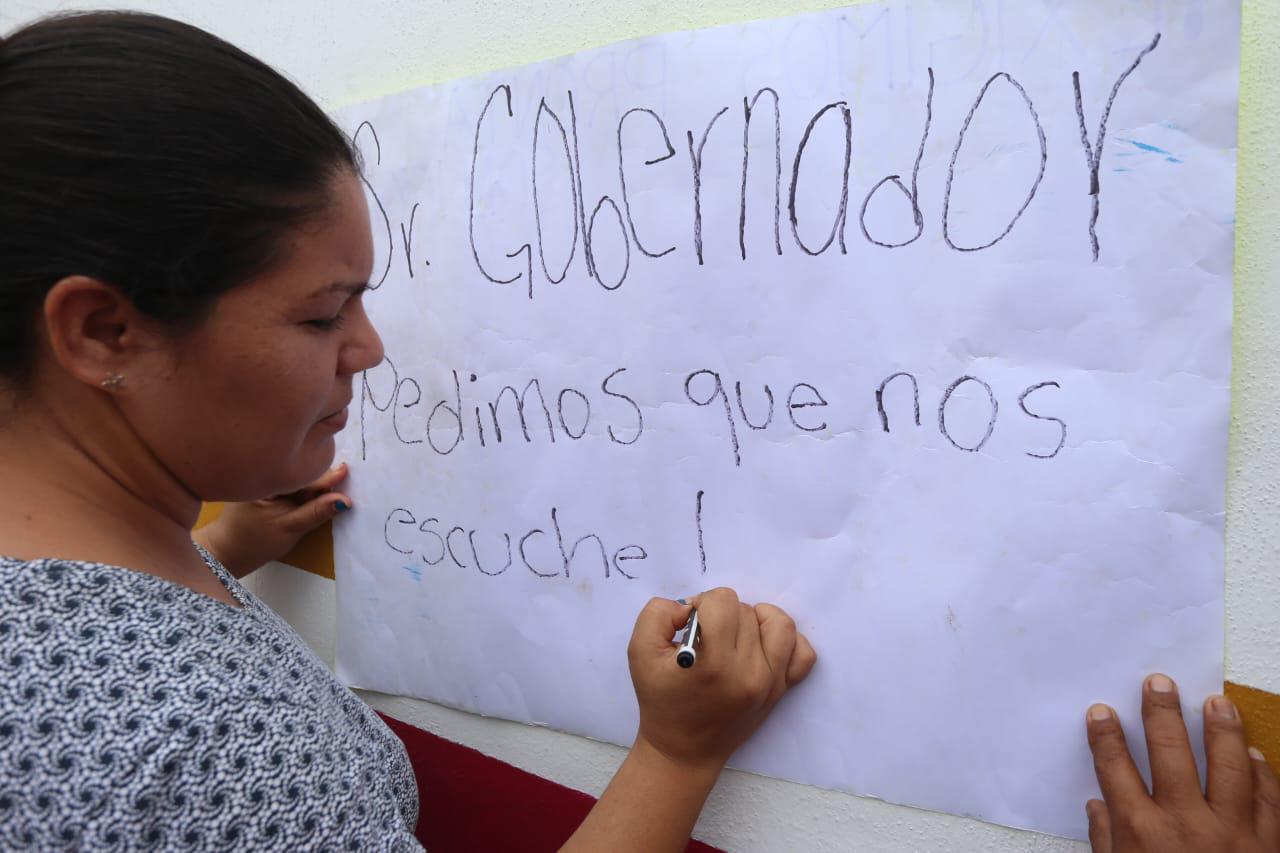 Sr. Gobernador
Pedimos que nos
escuche!